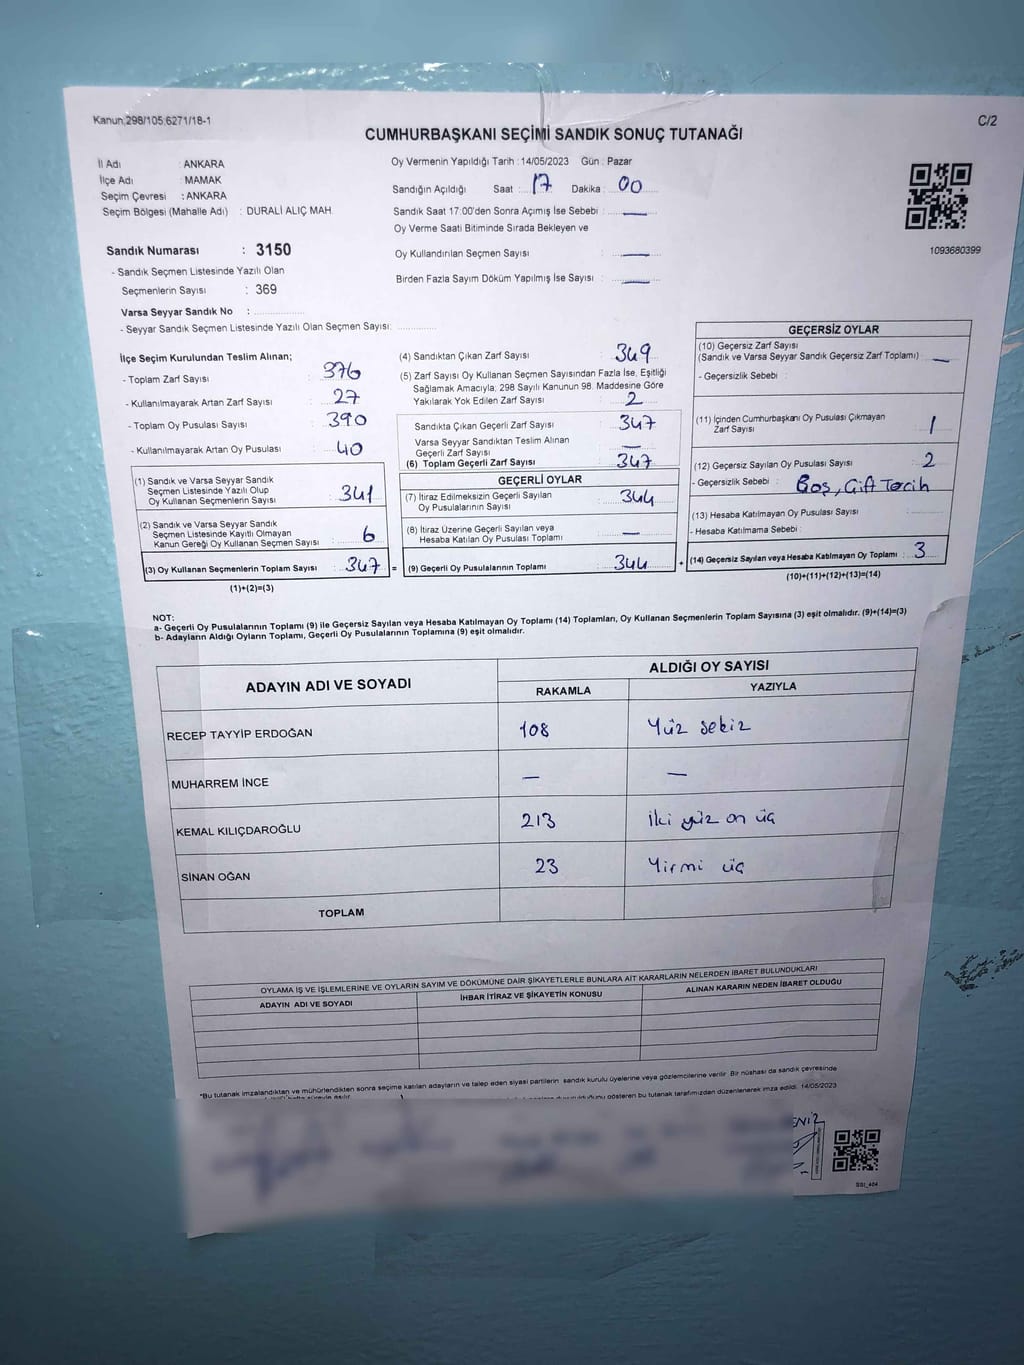 Kanun:298/105;6271/18-1
C/2
CUMHURBAŞKANI SEÇİMİ SANDIK SONUÇ TUTANAĞI
İl Adı : ANKARA
İlçe Adı : MAMAK
Seçim Çevresi : ANKARA
Seçim Bölgesi (Mahalle Adı) : DURALİ ALIÇ MAH.
Oy Vermenin Yapıldığı Tarih : 14/05/2023 Gün : Pazar
Sandığın Açıldığı Saat : 17 Dakika : 00
Sandık Saat 17:00'den Sonra Açımış İse Sebebi : —
Oy Verme Saati Bitiminde Sırada Bekleyen ve
Oy Kullandırılan Seçmen Sayısı : —
Birden Fazla Sayım Döküm Yapılmış İse Sayısı : —
1093680399
Sandık Numarası : 3150
- Sandık Seçmen Listesinde Yazılı Olan
Seçmenlerin Sayısı : 369
Varsa Seyyar Sandık No :
- Seyyar Sandık Seçmen Listesinde Yazılı Olan Seçmen Sayısı:
İlçe Seçim Kurulundan Teslim Alınan;
- Toplam Zarf Sayısı : 376
- Kullanılmayarak Artan Zarf Sayısı : 27
- Toplam Oy Pusulası Sayısı : 390
- Kullanılmayarak Artan Oy Pusulası : 40
(1) Sandık ve Varsa Seyyar Sandık
Seçmen Listesinde Yazılı Olup
Oy Kullanan Seçmenlerin Sayısı : 341
(2) Sandık ve Varsa Seyyar Sandık
Seçmen Listesinde Kayıtlı Olmayan
Kanun Gereği Oy Kullanan Seçmen Sayısı : 6
(3) Oy Kullanan Seçmenlerin Toplam Sayısı : 347
(1)+(2)=(3)
(4) Sandıktan Çıkan Zarf Sayısı : 349
(5) Zarf Sayısı Oy Kullanan Seçmen Sayısından Fazla İse, Eşitliği
Sağlamak Amacıyla; 298 Sayılı Kanunun 98. Maddesine Göre
Yakılarak Yok Edilen Zarf Sayısı : 2
Sandıkta Çıkan Geçerli Zarf Sayısı : 347
Varsa Seyyar Sandıktan Teslim Alınan
Geçerli Zarf Sayısı : —
(6) Toplam Geçerli Zarf Sayısı : 347
GEÇERLİ OYLAR
(7) İtiraz Edilmeksizin Geçerli Sayılan
Oy Pusulalarının Sayısı : 344
(8) İtiraz Üzerine Geçerli Sayılan veya
Hesaba Katılan Oy Pusulası Toplamı : —
= (9) Geçerli Oy Pusulalarının Toplamı : 344 +
GEÇERSİZ OYLAR
(10) Geçersiz Zarf Sayısı
(Sandık ve Varsa Seyyar Sandık Geçersiz Zarf Toplamı) : —
- Geçersizlik Sebebi :
(11) İçinden Cumhurbaşkanı Oy Pusulası Çıkmayan
Zarf Sayısı : 1
(12) Geçersiz Sayılan Oy Pusulası Sayısı : 2
- Geçersizlik Sebebi : Boş, Çift Tercih
(13) Hesaba Katılmayan Oy Pusulası Sayısı :
- Hesaba Katılmama Sebebi :
(14) Geçersiz Sayılan veya Hesaba Katılmayan Oy Toplamı : 3
(10)+(11)+(12)+(13)=(14)
NOT:
a- Geçerli Oy Pusulalarının Toplamı (9) ile Geçersiz Sayılan veya Hesaba Katılmayan Oy Toplamı (14) Toplamları, Oy Kullanan Seçmenlerin Toplam Sayısına (3) eşit olmalıdır. (9)+(14)=(3)
b- Adayların Aldığı Oyların Toplamı, Geçerli Oy Pusulalarının Toplamına (9) eşit olmalıdır.
ADAYIN ADI VE SOYADI ALDIĞI OY SAYISI
RAKAMLA YAZIYLA
RECEP TAYYİP ERDOĞAN 108 Yüz sekiz
MUHARREM İNCE — —
KEMAL KILIÇDAROĞLU 213 İki yüz on üç
SİNAN OĞAN 23 Yirmi üç
TOPLAM
OYLAMA İŞ VE İŞLEMLERİNE VE OYLARIN SAYIM VE DÖKÜMÜNE DAİR ŞİKAYETLERLE BUNLARA AİT KARARLARIN NELERDEN İBARET BULUNDUKLARI
ADAYIN ADI VE SOYADI İHBAR İTİRAZ VE ŞİKAYETİN KONUSU ALINAN KARARIN NEDEN İBARET OLDUĞU
*Bu tutanak imzalandıktan ve mühürlendikten sonra seçime katılan adayların ve talep eden siyasi partilerin sandık kurulu üyelerine veya gözlemcilerine verilir. Bir nüshası da sandık çevresinde
hafta süreyle asılır. gösteren bu tutanak tarafımızdan düzenlenerek imza edildi. 14/05/2023